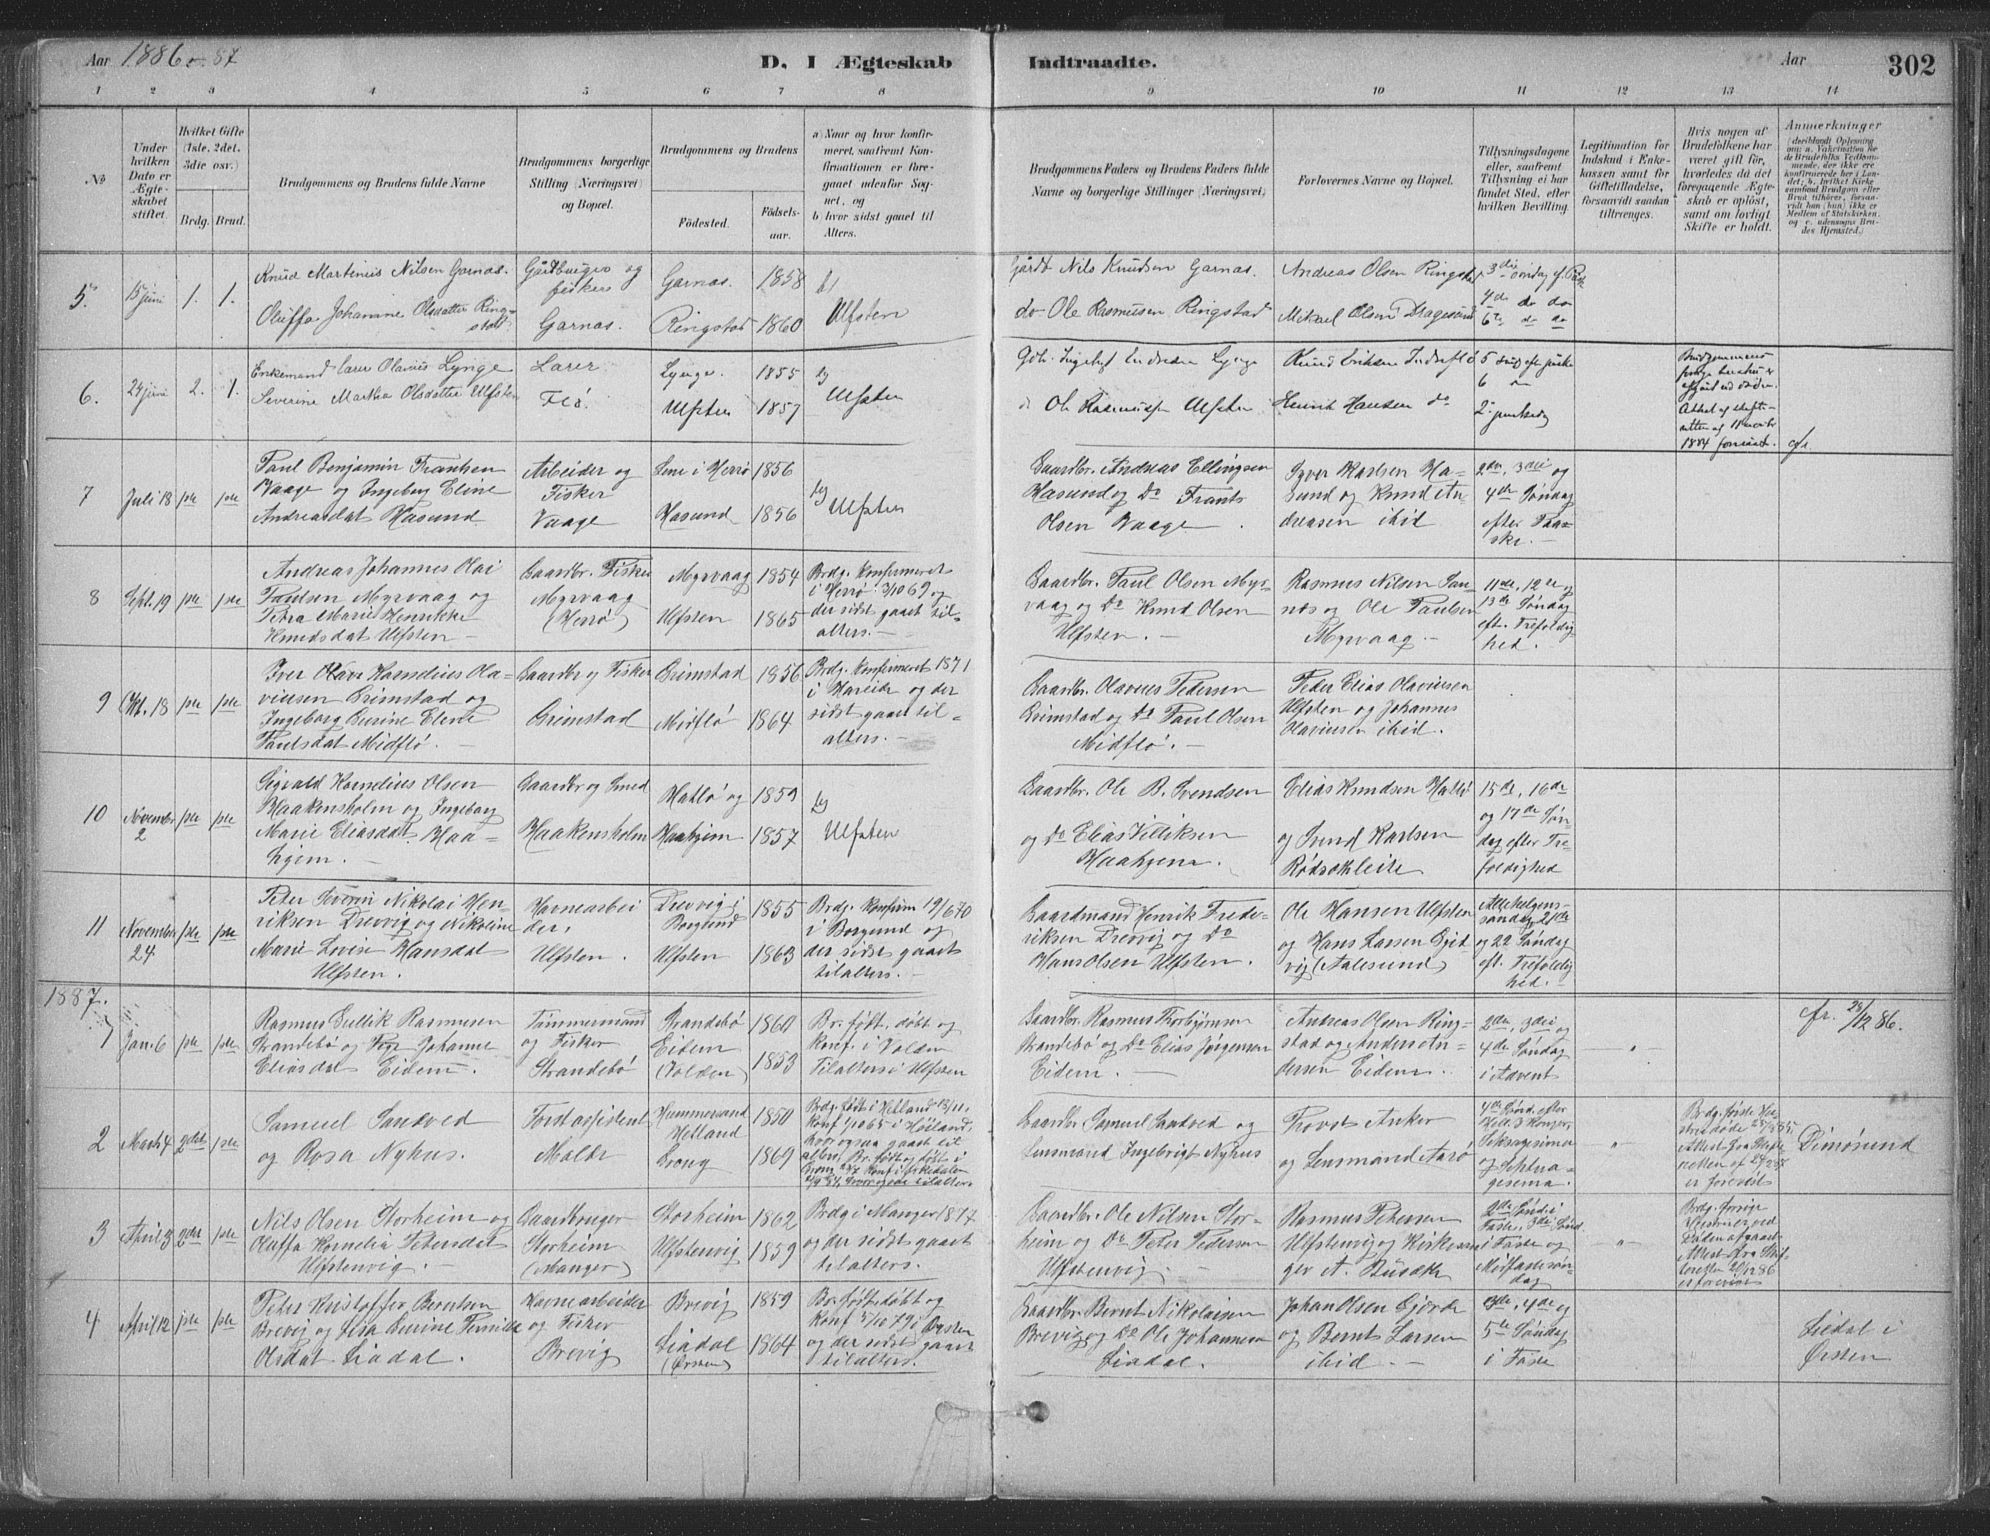 Aar 1886 o. 87
D. I Ægteskab
Indtraadte.
Aar
302
1 2 3 4 5 6 7 8 9 10 11 12 13 14
No
Under hvilken Dato er Ægteskabet stiftet.
Hvilket Gifte (1ste, 2det, 3die osv.)
Brdg. Brud.
Brudgommens og Brudens fulde Navne
Brudgommens borgerlige Stilling (Næringsvei) og Bopæl.
Brudgommens og Brudens
Fødested. Fødselsaar.
a) Naar og hvor konfirmeret, saafremt Konfirmationen er foregaaet udenfor Sognet, og
b) hvor sidst gaaet til Alters.
Brudgommens Faders og Brudens Faders fulde Navne og borgerlige Stillinger (Næringsvei)
Forlovernes Navne og Bopæl.
Tillysningsdagene eller, saafremt Tillysning ei har fundet Sted, efter hvilken Bevilling
Legitimation for Indskud i Enkekassen samt for Giftetilladelse, forsaavidt saadan tiltrænges.
Hvis nogen af Brudefolkene har været gift før, hvorledes da det foregaaende Ægteskab er opløst, samt om lovligt Skifte er holdt.
Anmerkninger
5.
15 juni
1. 1.
Knud Martinus Nilsen Garnas.
Oluffa Johanne Olsdatter Ringstad
Gårdbruger og fisker
Garnas.
Garnas. 1858
Ringstad 1860
b)
Ulfsten
Gårdb Nils Knudsen Garnas.
do Ole Rasmusen Ringstad
Andreas Olsen Ringstad
Mikael Olsen Dragesund
4de do do
6te do do
6.
24 juni
2. 1.
Enkemand Larer Olavus Lynge
Severine Martha Olsdatter Ulfsten
Larer
Flø.
Lynge. 1855
Ulfsten 1857
Ulfsten
Ole Rasmussen Ulfsten
Knud Eriksen Indreflø
Henrik Hansen do
7
Juli 18
1ste 1ste
Paul Benjamin Frantsen
Vaage og Ingeborg Eline
Andreasdat Hasund
Arbeider og
Fisker
Vaage
1856
Hasund 1856
Ulfsten
Gaardbr. Andreas Ellingsen
Hasund og Do Frants
Olsen Vaage
Iver Karlsen Ha-
sund og Knud An-
dreasen ibid
2den, 3die og
4de Søndag
efter Paa-
ske.
8
Sept. 19
1ste 1ste
Andreas Johannes Olai
Paulsen Myrvaag og
Petra Marie Henrikke
Knudsdat Ulfsten
Gaardbr. Fisker
Myrvaag
(Herrø)
Myrvaag 1854
Ulfsten 1865
Brdg. Konfirmeret
i Herrø 3/10 69 og
der sidst gaaet til-
alters.
Gaardbr. Paul Olsen Myr-
vaag og Do Knud Olsen
Ulfsten.
Rasmus Nilsen
og Ole Paulsen
Myrvaag.
11te, 12te og
13de Søndag
eft. Trefoldig
hed.
9
Okt. 18
1ste 1ste
Iver Olave Kornelius Ola-
viusen Grimstad og
Ingeborg Gurine Elene
Paulsdat Midflø.
Gaardbr og Fisker
Grimstad
Grimstad 1856
Midflø 1864
Brdg. Konfirmeret 1871
i Hareide og der
sidst gaaet til-
alters.
Gaardbr. Olavius Pedersen
Grimstad og Do Paul Olsen
Midflø.
Peder Elias Olaviusen
Ulfsten og Johannes
Olaviusen ibid.
10
November 2
1ste 1ste
Sigvald Kornelius Olsen
Haakensholm og Ingeborg
Marie Eliasdat Haa-
hjem.
Gaardbr og Smed
Haakensholm
Hatlø og 1859
Haahjem 1857
Ulfsten
Gaardbr. Ole B. Svendsen
og Do Elias Villiksen
Haahjem.
Elias Knudsen Hatlø
og Svend Karlsen
Rødsætleite
15de, 16de
og 17de Søn-
dag efter Tre-
foldighed
11
November 24
1ste 1ste
Peter Severin Nikolai Hen-
riksen Drevvig og Nikoline
Marie Lovise Hansdat
Ulfsten.
Havnearbei
der,
Ulfsten.
Drevvig i Borgund 1855
Ulfsten 1863
Brdg. Konfirm 19/6 70
i Borgund og
der sidst gaaet
tilalters.
Gaardmand Henrik Frede-
riksen Drevvig og Do
Hans Olsen Ulfsten.
Ole Hansen Ulfsten
og Hans Larsen
(Aalesund)
Allehelgens-
søndag, 21de
og 22 Søndag
eft. Trefoldig
hed.
1887.
1
Jan. 6
1ste 1ste
Rasmus Gullik Rasmusen
Strandebø og Johanne
Eliasdat Eidem.
Tømmermand
og Fisker
Strandebø
Strandebø 1860
Eidem (Volden) 1853
Br. født, døbt og
Konf. i Volden
Tilalters i Ulfsten
Gaardbr. Rasmus Thorbjørnsen
Strandebø og Do Elias Jørgensen
Eidem.
Andreas Olsen Ring-
stad og Anders An-
dersen Eidem.
2den, 3die og
4de Søndag
i Advent
fr. 28/12 86.
2
Marts 4
2det 1ste
Samuel Sandved
og Rosa Nyhus.
Forstassistent
Molde
Helland 1850
Grong 1869
Brdg. født i Hetland
Gaardbr. Samuel Sandved og
Lensmand Ingebrigt Nyhus
Provst Anker
og Lensmand Aarø
4de Sønd. efter
Hell. 3 Konger,
Seksagesima
og Septua-
gesima.
Brdg. første Hu-
stru døde
Attest fra Skifte
retten af
er forevist
Dimøsund
3
April 3
2det 1ste
Nils Olsen Storheim og
Oluffa Kornelia Petersdat
Ulfstenvig.
Gaardbruger
Storheim
(Manger)
Storheim 1862
Ulfstenvig 1859
Brdg i Manger 1877
og der sidst gaaet
tilalters.
Gaardbr. Ole Nilsen Stor-
heim og Do Peter Pedersen
Ulfstenvig.
Rasmus Petersen
Ulfstenvig og Kirkesan-
ger A. Busæth
2den Sønd. i
Faste, 3die Sønd
i Faste og
Midfastesøn-
dag
Brdg. forrige
Hustru er ved
Døden afgaaet.
Attest fra Skif-
teretten 20/12 86
er forevist
4
April 12
1ste 1ste
Peter Kristoffer Berntsen
Brevig og Lisa Gurine Pernille
Olsdat Liadal.
Havnearbeider
og Fisker
Brevig
Brevig 1859
Liadal (Ørsten) 1864
Br. født, døbt og
Konf 5/10 79 i Ørsten
og der sidst gaaet
tilalters.
Gaardbr. Bernt Nikolaisen
Brevig og Do Ole Johannesen
Liadal.
Johan Olsen Gjerde
og Bernt Larsen
ibid.
3die, 4de og
5te Søndag
i Faste
Liadal i
Ørsten